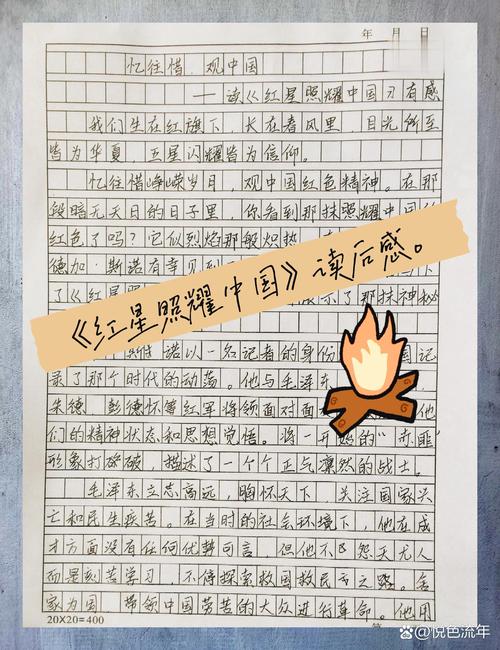 年 月 日
忆往惜,观中国
——读《红星照耀中国》有感
我们生在红旗下,长在春风里,目光所至
皆为华夏,五星闪耀皆为信仰。
忆往惜峥嵘岁月,观中国红色精神。在那
段暗无天日的日子里,你看到那抹照耀中国
红色了吗?它似烈焰那般炽热,
德加·斯诺有幸见到
了《红星 示了那抹神秘
《红星照耀中国》读后感。
诺以一名记者的身份 国记
录了那个时代的动荡。他与毛泽东
朱德、彭德怀等红军将领面对面 他
们的精神状态和思想觉悟。将一开始的"赤匪"
形象打破,描述了一个个正气凛然的战士。
毛泽东立志高远,胸怀天下,关注国家兴
亡和民生疾苦。在当时的社会环境下,他在成
才方面没有任何优势可言,但他不怨天尤人
而是刻苦学习,不停探索救国救民之路。舍
家为国,带领中国劳苦的大众进行革命。他用
20X20=400
悦色流年